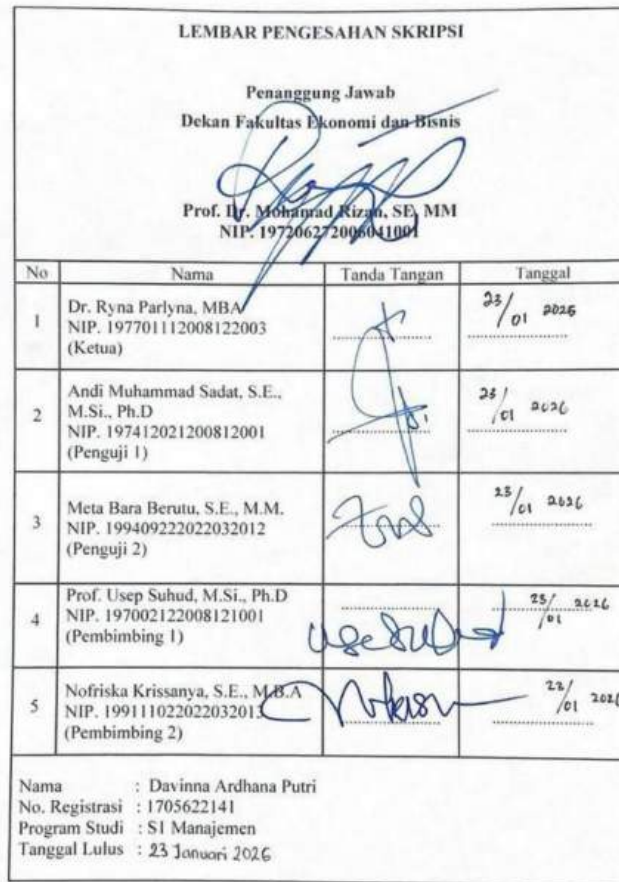 LEMBAR PENGESAHAN SKRIPSI
Penanggung Jawab
Dekan Fakultas Ekonomi dan Bisnis
Prof. Dr. Mohamad Rizan, SE, MM
NIP. 197206272006041001
No Nama Tanda Tangan Tanggal
1 Dr. Ryna Parlyna, MBA
NIP. 197701112008122003
(Ketua)
23/01 2026
2 Andi Muhammad Sadat, S.E.,
M.Si., Ph.D
NIP. 197412021200812001
(Penguji 1)
23/01 2026
3 Meta Bara Berutu, S.E., M.M.
NIP. 199409222022032012
(Penguji 2)
23/01 2026
4 Prof. Usep Suhud, M.Si., Ph.D
NIP. 197002122008121001
(Pembimbing 1)
23/01 2026
5 Nofriska Krissanya, S.E., M.B.A
NIP. 199111022022032013
(Pembimbing 2)
22/01 2026
Nama : Davinna Ardhana Putri
No. Registrasi : 1705622141
Program Studi : S1 Manajemen
Tanggal Lulus : 23 Januari 2026